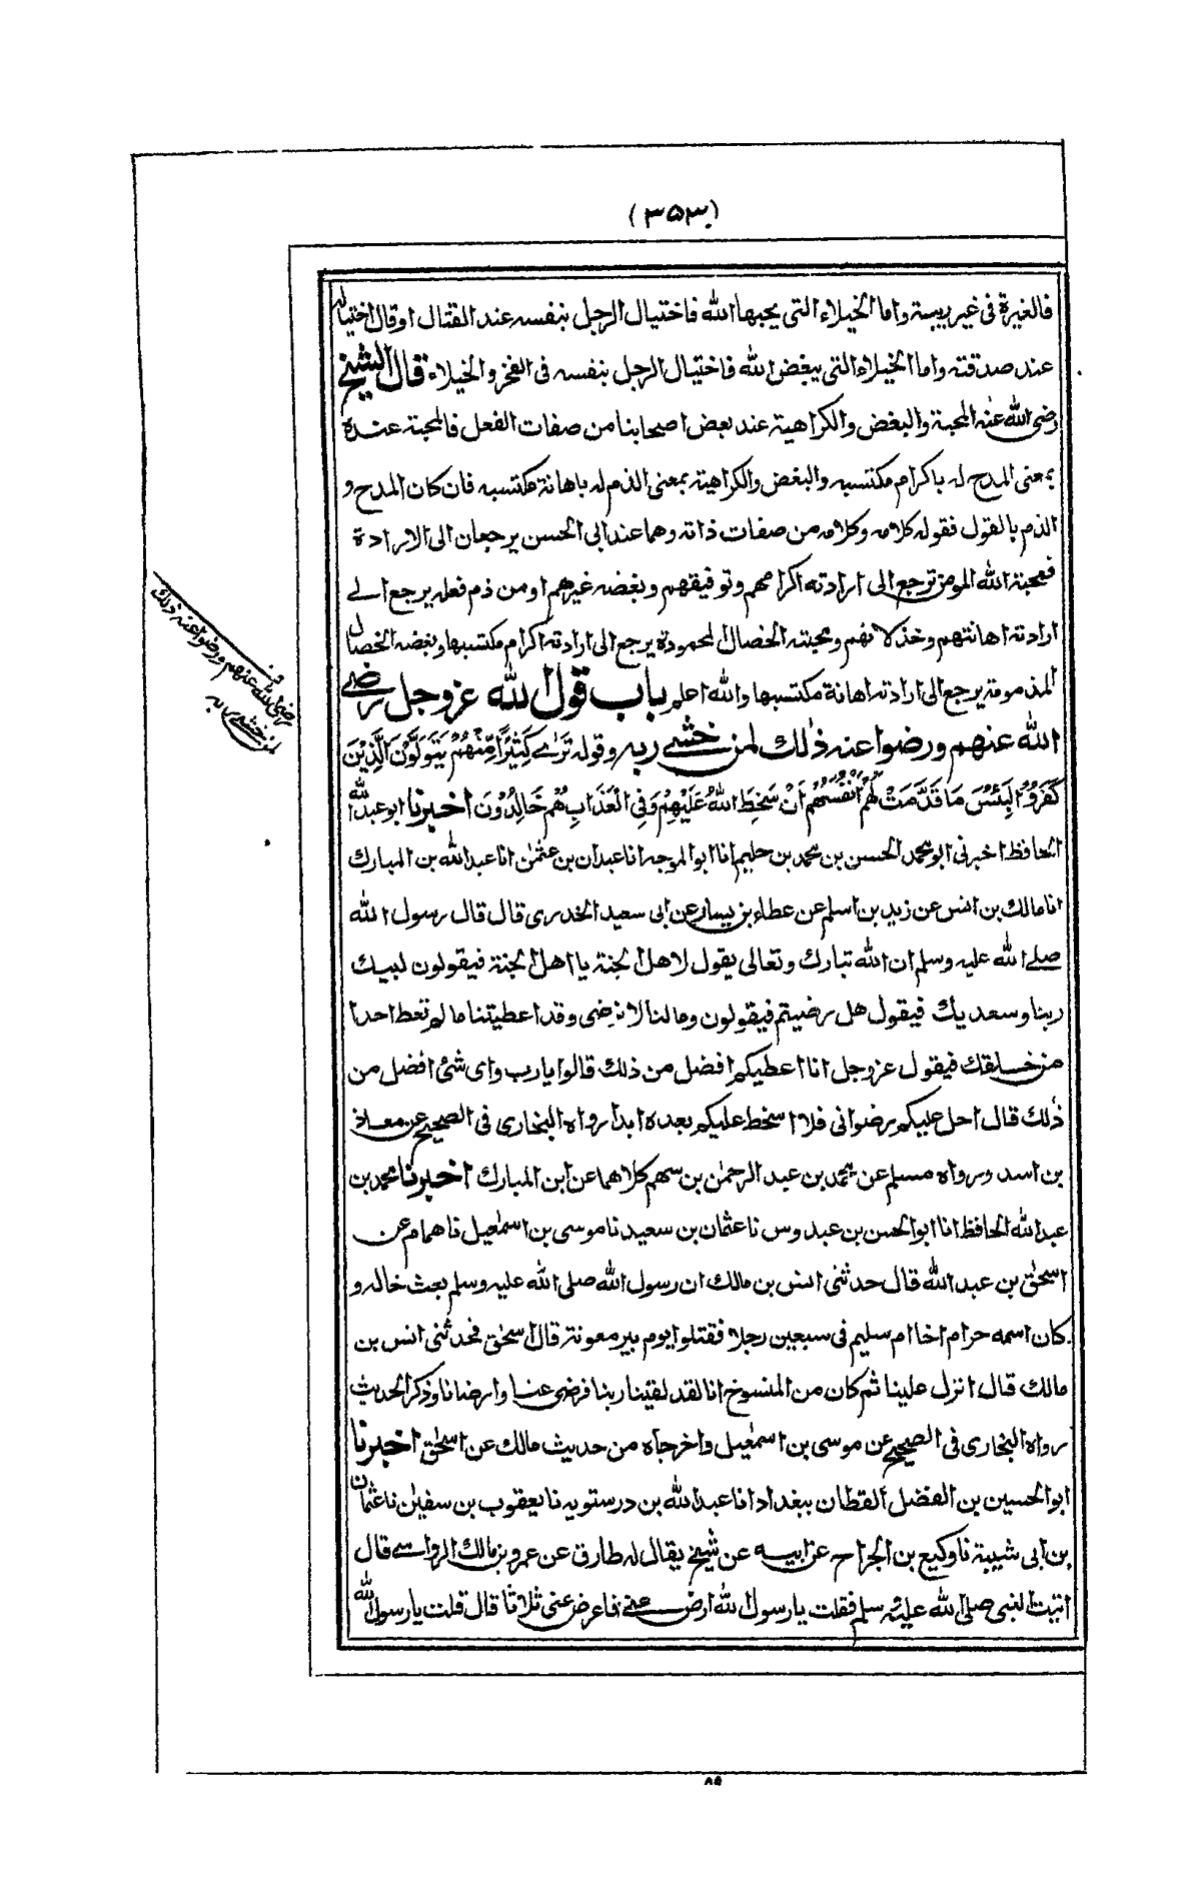 (٣٥٣)
فالغيرة فى غير ريبة واما الخيلاء التى يحبها الله فاختيال الرجل بنفسه عند القتال او قال اختياله
عند صدقته واما الخيلاء التى يبغض الله فاختيال الرجل بنفسه فى الفخر والخيلاء قال الشيخ
رضى الله عنه المحبة والبغض والكراهية عند بعض اصحابنا من صفات الفعل فالمحبة عنده
بمعنى المدح له باكرام مكتسبه والبغض والكراهية بمعنى الذم له باهانة مكتسبه فان كان المدح و
الذم بالقول فقوله كلامه وكلامه من صفات ذاته وهما عند ابى الحسن يرجعان الى الارادة
فمحبة الله المومنين ترجع الى ارادته اكرامهم وتوفيقهم وبغضه غيرهم او من ذم فعله يرجع الے
ارادته اهانتهم وخذلانهم ومحبته الخصال المحمودة يرجع الى ارادته اكرام مكتسبها وبغضه الخصال
المذمومة يرجع الى ارادته اهانة مكتسبها والله اعلم باب قول الله عزوجل رضى
الله عنهم ورضوا عنه ذلك لمن خشى ربه وقوله تَرٰے كَثِيْرًا مِّنْهُمْ يَتَوَلَّوْنَ الَّذِيْنَ
كَفَرُوْا لَبِئْسَ مَا قَدَّمَتْ لَهُمْ اَنْفُسُهُمْ اَنْ سَخِطَ اللهُ عَلَيْهِمْ وَفِى الْعَذَابِ هُمْ خَالِدُوْنَ اخبرنا ابو عبد الله
الحافظ اخبرنى ابو محمد الحسن بن محمد بن حليم انا ابو الموجه انا عبدان بن عثمٰن انا عبد الله بن المبارك
انا مالك بن انس عن زيد بن اسلم عن عطاء بن يسار عن ابى سعيد الخدرى قال قال رسول الله
صلے الله عليه وسلم ان الله تبارك وتعالى يقول لاهل الجنة يا اهل الجنة فيقولون لبيك
ربنا وسعديك فيقول هل رضيتم فيقولون وما لنا لا نرضى وقد اعطيتنا ما لم تعط احدا
من خلقك فيقول عزوجل انا اعطيكم افضل من ذلك قالوا يا رب واى شئ افضل من
ذلك قال احل عليكم رضوانى فلا اسخط عليكم بعده ابدا رواه البخارى فى الصحيح عن معاذ
بن اسد ورواه مسلم عن محمد بن عبد الرحمٰن بن سهم كلاهما عن ابن المبارك اخبرنا محمد بن
عبد الله الحافظ انا ابو الحسن بن عبدوس نا عثمان بن سعيد نا موسى بن اسمٰعيل نا همام عن
اسحٰق بن عبد الله قال حدثنى انس بن مالك ان رسول الله صلى الله عليه وسلم بعث خاله و
كان اسمه حرام اخا ام سليم فى سبعين رجلا فقتلوا يوم بير معونة قال اسحٰق فحدثنى انس بن
مالك قال انزل علينا ثم كان من المنسوخ انا لقد لقينا ربنا فرضى عنا وارضانا وذكر الحديث
رواه البخارى فى الصحيح عن موسى بن اسمٰعيل واخرجاه من حديث مالك عن اسحٰق اخبرنا
ابو الحسين بن الفضل القطان ببغداد انا عبد الله بن درستويه نا يعقوب بن سفيٰن نا عثمان
بن ابى شيبة نا وكيع بن الجراح عن ابيه عن شيخ يقال له طارق عن عمرو بن مالك الرواسے قال
اتيت النبى صلى الله عليه سلم فقلت يا رسول الله ارض عنے فاعرض عنى ثلاثا قال قلت يا رسول الله
رضى الله عنهم ورضوا عنه ذلك
لمن خشى ربه